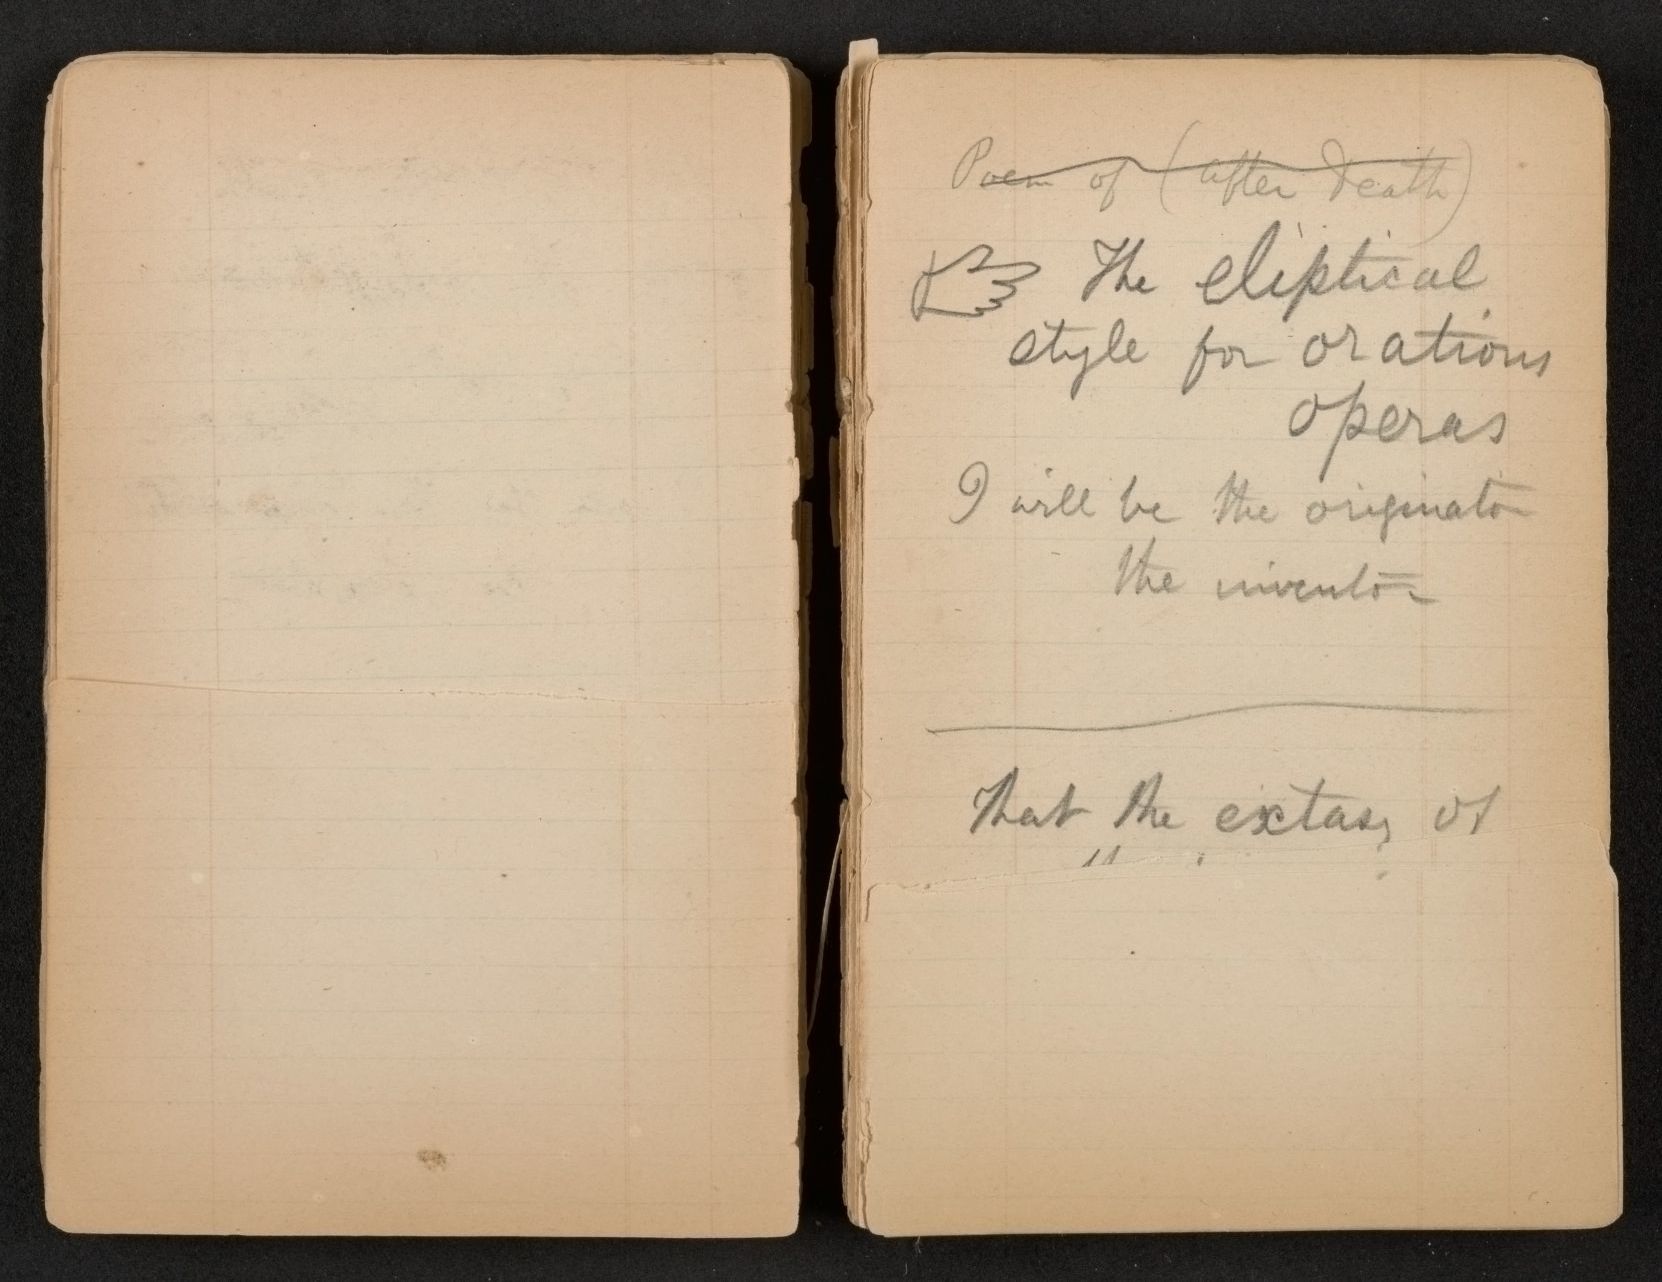 Poem of (after Death)
The eliptical
style for orations
operas
I will be the originator
the inventor
That the extasy of